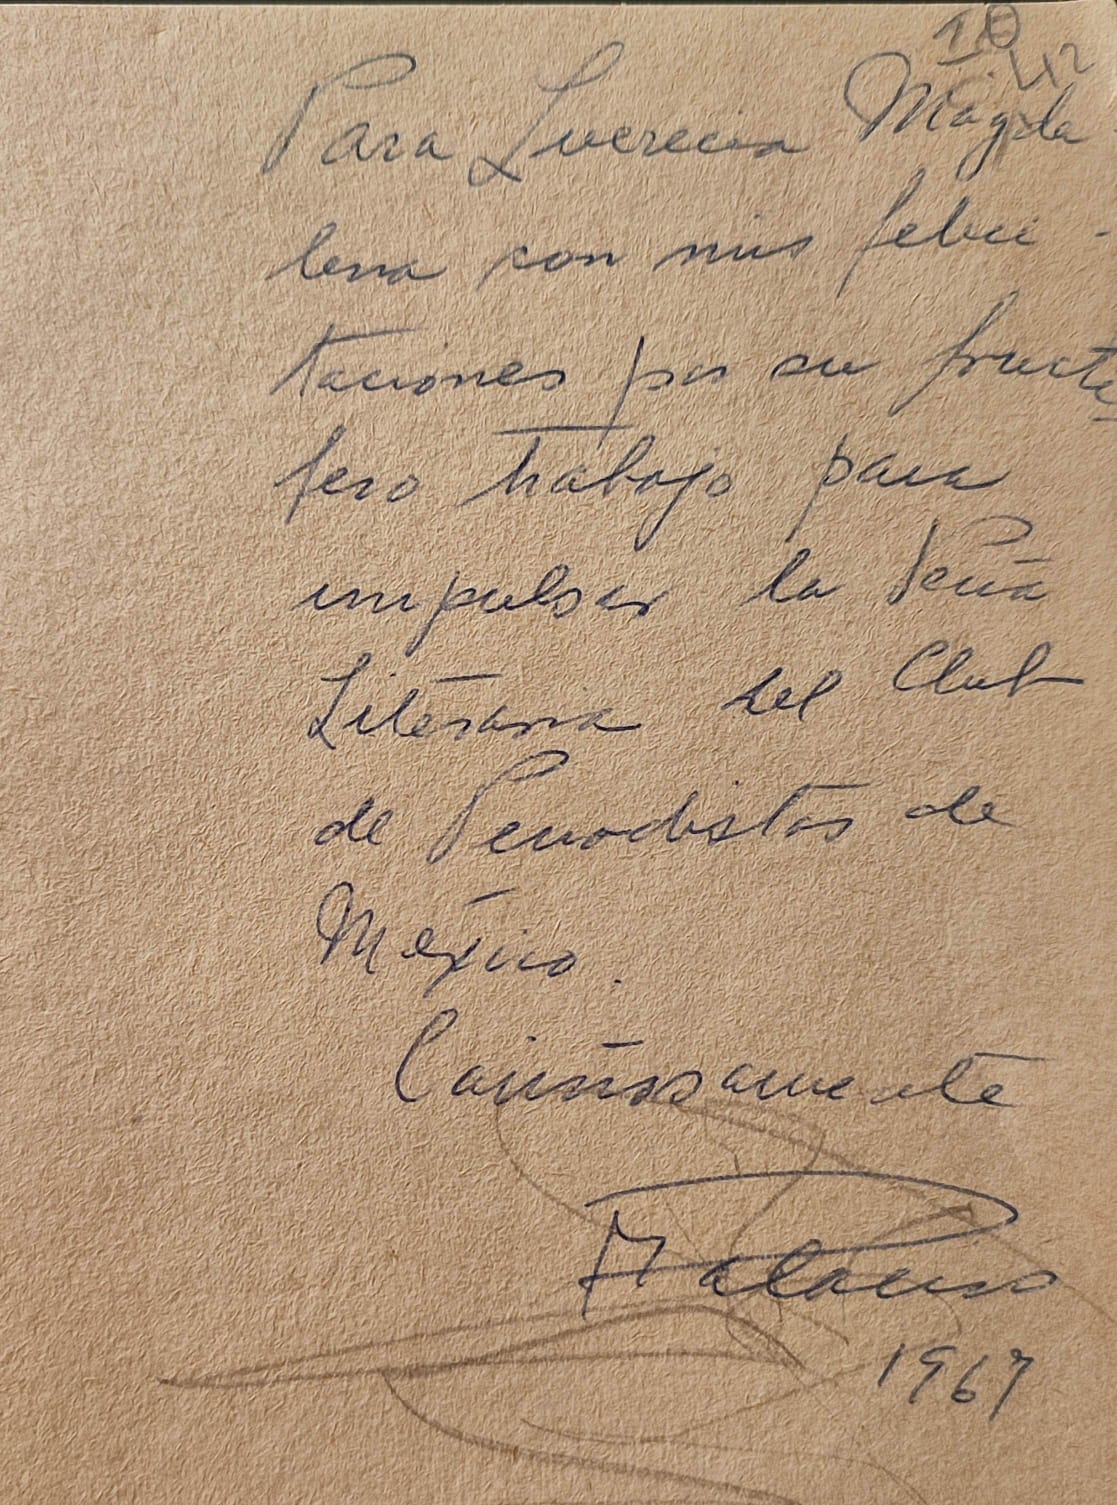 10
Para Lucrecia Magda
lena con mis felici -
taciones por su fructi
fero trabajo para
impulsar la Peña
Literaria del Club
de Periodistas de
México.
Cariñosamente
Palacios
1967